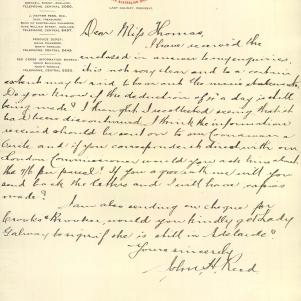 TELEPHONE, CENTRAL
Dear Miss Thomas,
I have received the
enclosed in answer to my enquiries,
it is not very clear and to a certain
extent only
Do you know if the deduction of a day is still
being made? I thought I recollected seeing that it
had been discontinued. I think the information
received should be sent on to our Commission
and if you correspond direct with our
London Commissioner would you ask him about
the per parcel? If you agree with me will you
send back the letters and I will have copies
made?
I am also sending on cheque for
Crooks & Brooker, would you kindly get Lady
Galway to sign if she is still in Adelaide
Yours sincerely
John H. Reed